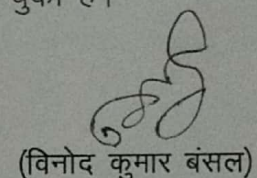 (विनोद कुमार बंसल)